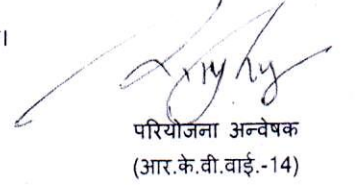 ।
परियोजना अन्वेषक
(आर.के.वी.वाई.-14)